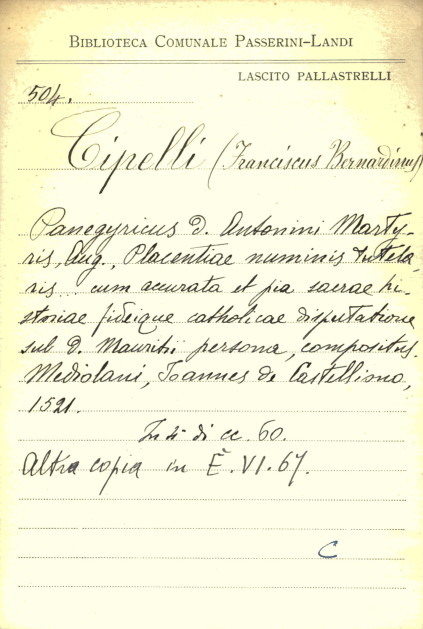 BIBLIOTECA COMUNALE PASSERINI-LANDI
LASCITO PALLASTRELLI
504.
Cipelli (Franciscus Bernardinus)
Panegyricus D. Antonini Marty-
ris, Aug., Placentiae numinis tutela-
ris... cum accurata et pia sacrae hi-
storiae fideique catholicae disputatione
sub D. Mauritii persona, compositus.
Mediolani, Joannes de Castelliono,
1521.
In 4° di cc. 60.
Altra copia in E. VI. 67.
C